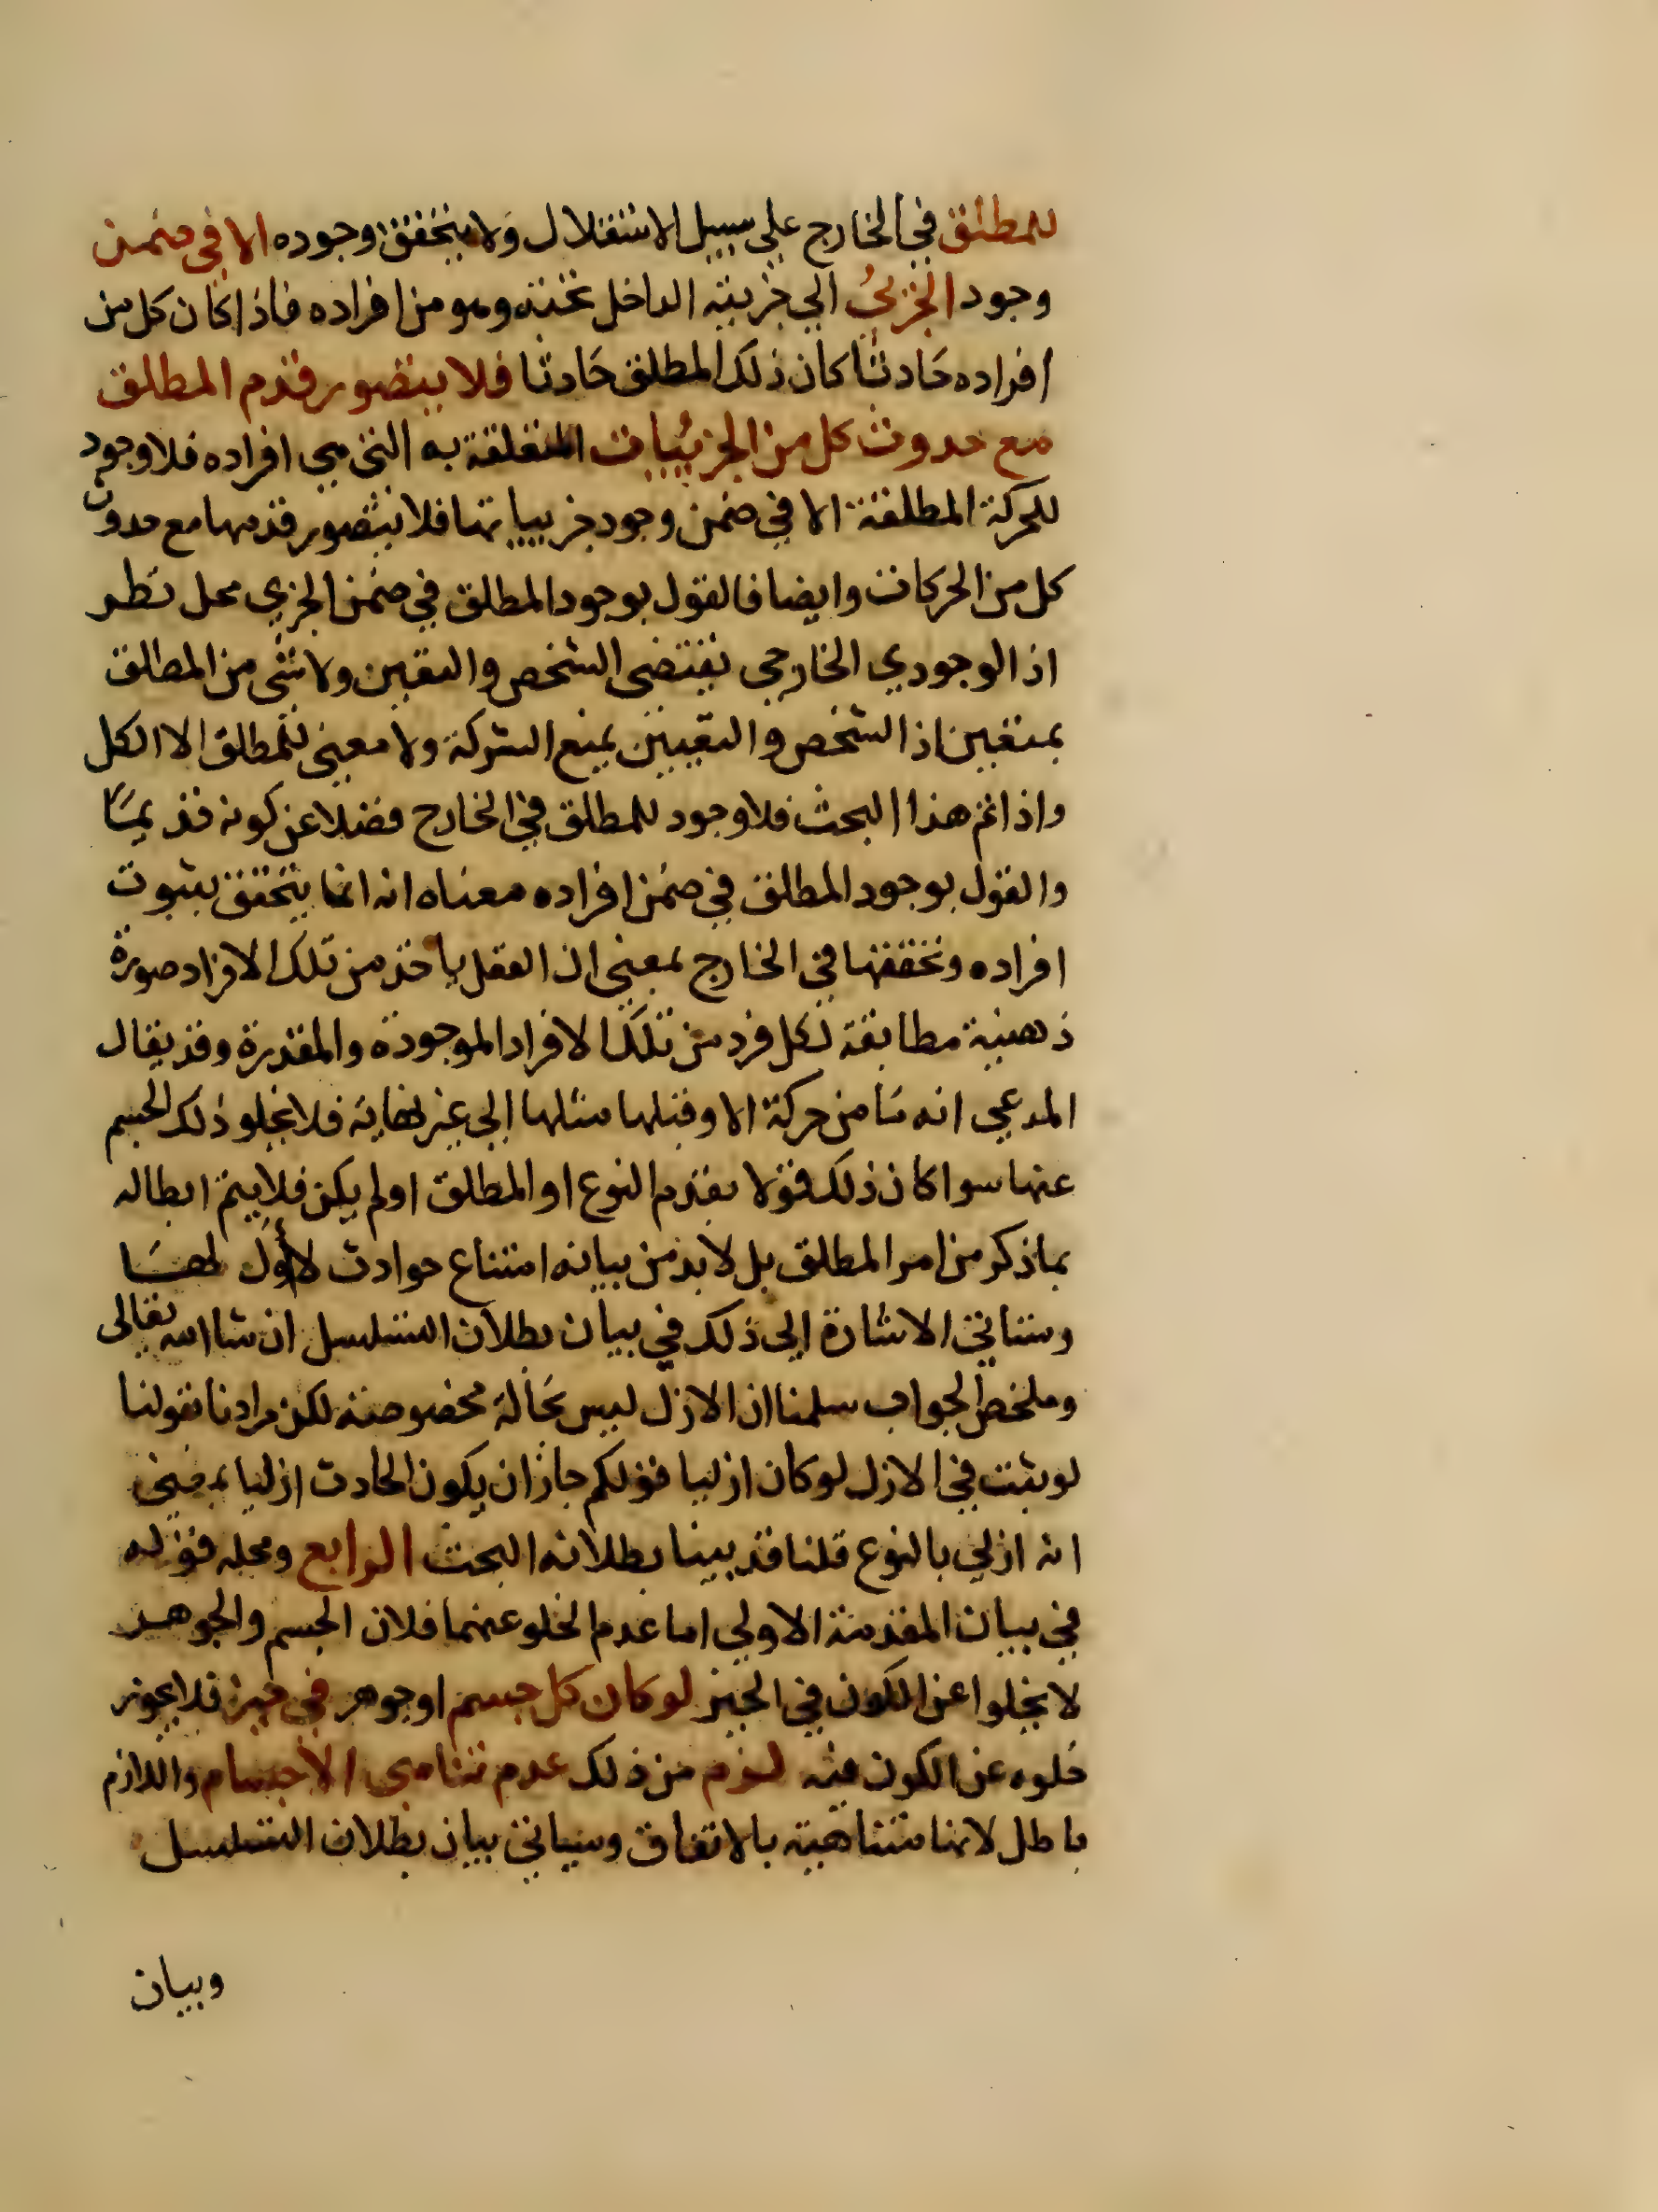 للمطلق في الخارج علي سبيل الاستقلال ولا يتحقق وجوده الا في ضمن
وجود الجزئي الي جزييته الداخل تحته وهو من افراده فاذا كان كل من
افراده حادثا كان ذلك المطلق حادثا فلا يتصور قدم المطلق
مع حدوث كل من الجزئييات المتعلقة به التي هي افراده فلا وجود
للحركة المطلقة الا في ضمن وجود جزيياتها فلا يتصور قدمها مع حدوث
كل من الحركات وايضا فالقول بوجود المطلق في ضمن الجزي محل نظر
اذ الوجودي الخارجي يقتضي التشخص والتعين ولا شي من المطلق
بمتعين اذ التشخص والتعيين يمنع الشركة ولا معني للمطلق الا الكل
واذا تم هذا البحث فلا وجود للمطلق في الخارج فضلا عن كونه قديمًا
والقول بوجود المطلق في ضمن افراده معناه انه انما يتحقق بثبوت
افراده وتحققها في الخارج بمعني ان العقل ياخذ من تلك الافراد صورة
ذهنية مطابقة لكل فرد من تلك الافراد الموجودة والمقدرة وقد يقال
المدعي انه ما من حركة الا وقبلها مثلها الي غير نهاية فلا يخلو ذلك الجسم
عنها سوا كان ذلك قولا بقدم النوع او المطلق او لم يكن فلا يتم ابطاله
بما ذكر من امر المطلق بل لا بد من بيانه امتناع حوادث لا أول لهَا
وستاتي الاشارة الي ذلك في بيان بطلان التسلسل ان شا الله تعالى
وملخص الجواب سلمنا ان الازل ليس بحالة مخصوصة لكن مرادنا بقولنا
لو يثبت في الازل لو كان ازليا قولكم جاز ان يكون الحادث ازليا بمعني
انه ازلي بالنوع قلنا قد بينا بطلانه البحث الرابع ومحله قوله
في بيان المقدمة الاولي اما عدم الخلو عنهما فلان الجسم والجوهر
لا يخلوا عن الكون في الحيز لو كان كل جسم او جوهر في حيز فلا يجوز
خلوه عن الكون فيه لزم من ذلك عدم تناهي الاجسام واللازم
باطل لانها متناهية بالاتفاق وسياتي بيان بطلان التسلسل
وبيان